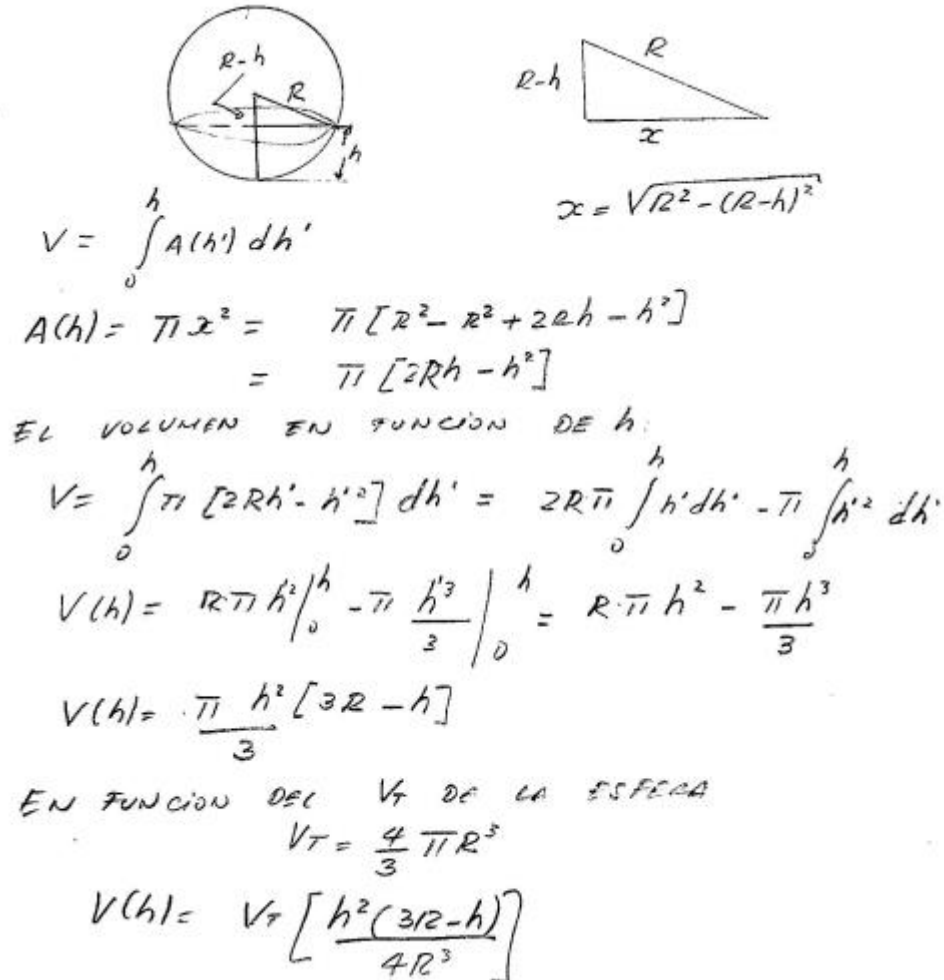 R-h
R
h
R
R-h
x
x = √R² - (R-h)²
V = ∫₀ʰ A(h') dh'
A(h) = πx² = π [R² - R² + 2Rh - h²]
= π [2Rh - h²]
EL VOLUMEN EN FUNCION DE h.
V = ∫₀ʰ π [2Rh' - h'²] dh' = 2Rπ ∫₀ʰ h' dh' - π ∫₀ʰ h'² dh'
V(h) = R·π h²|₀ʰ - π h'³/3 |₀ʰ = R·π h² - πh³/3
V(h) = π h²/3 [3R - h]
EN FUNCION DEL V_T DE LA ESFERA
V_T = 4/3 πR³
V(h) = V_T [h²(3R-h)/4R³]